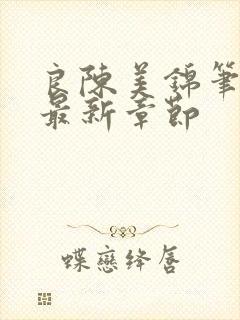 良陳美錦筆
最新章節
蝶戀絳唇